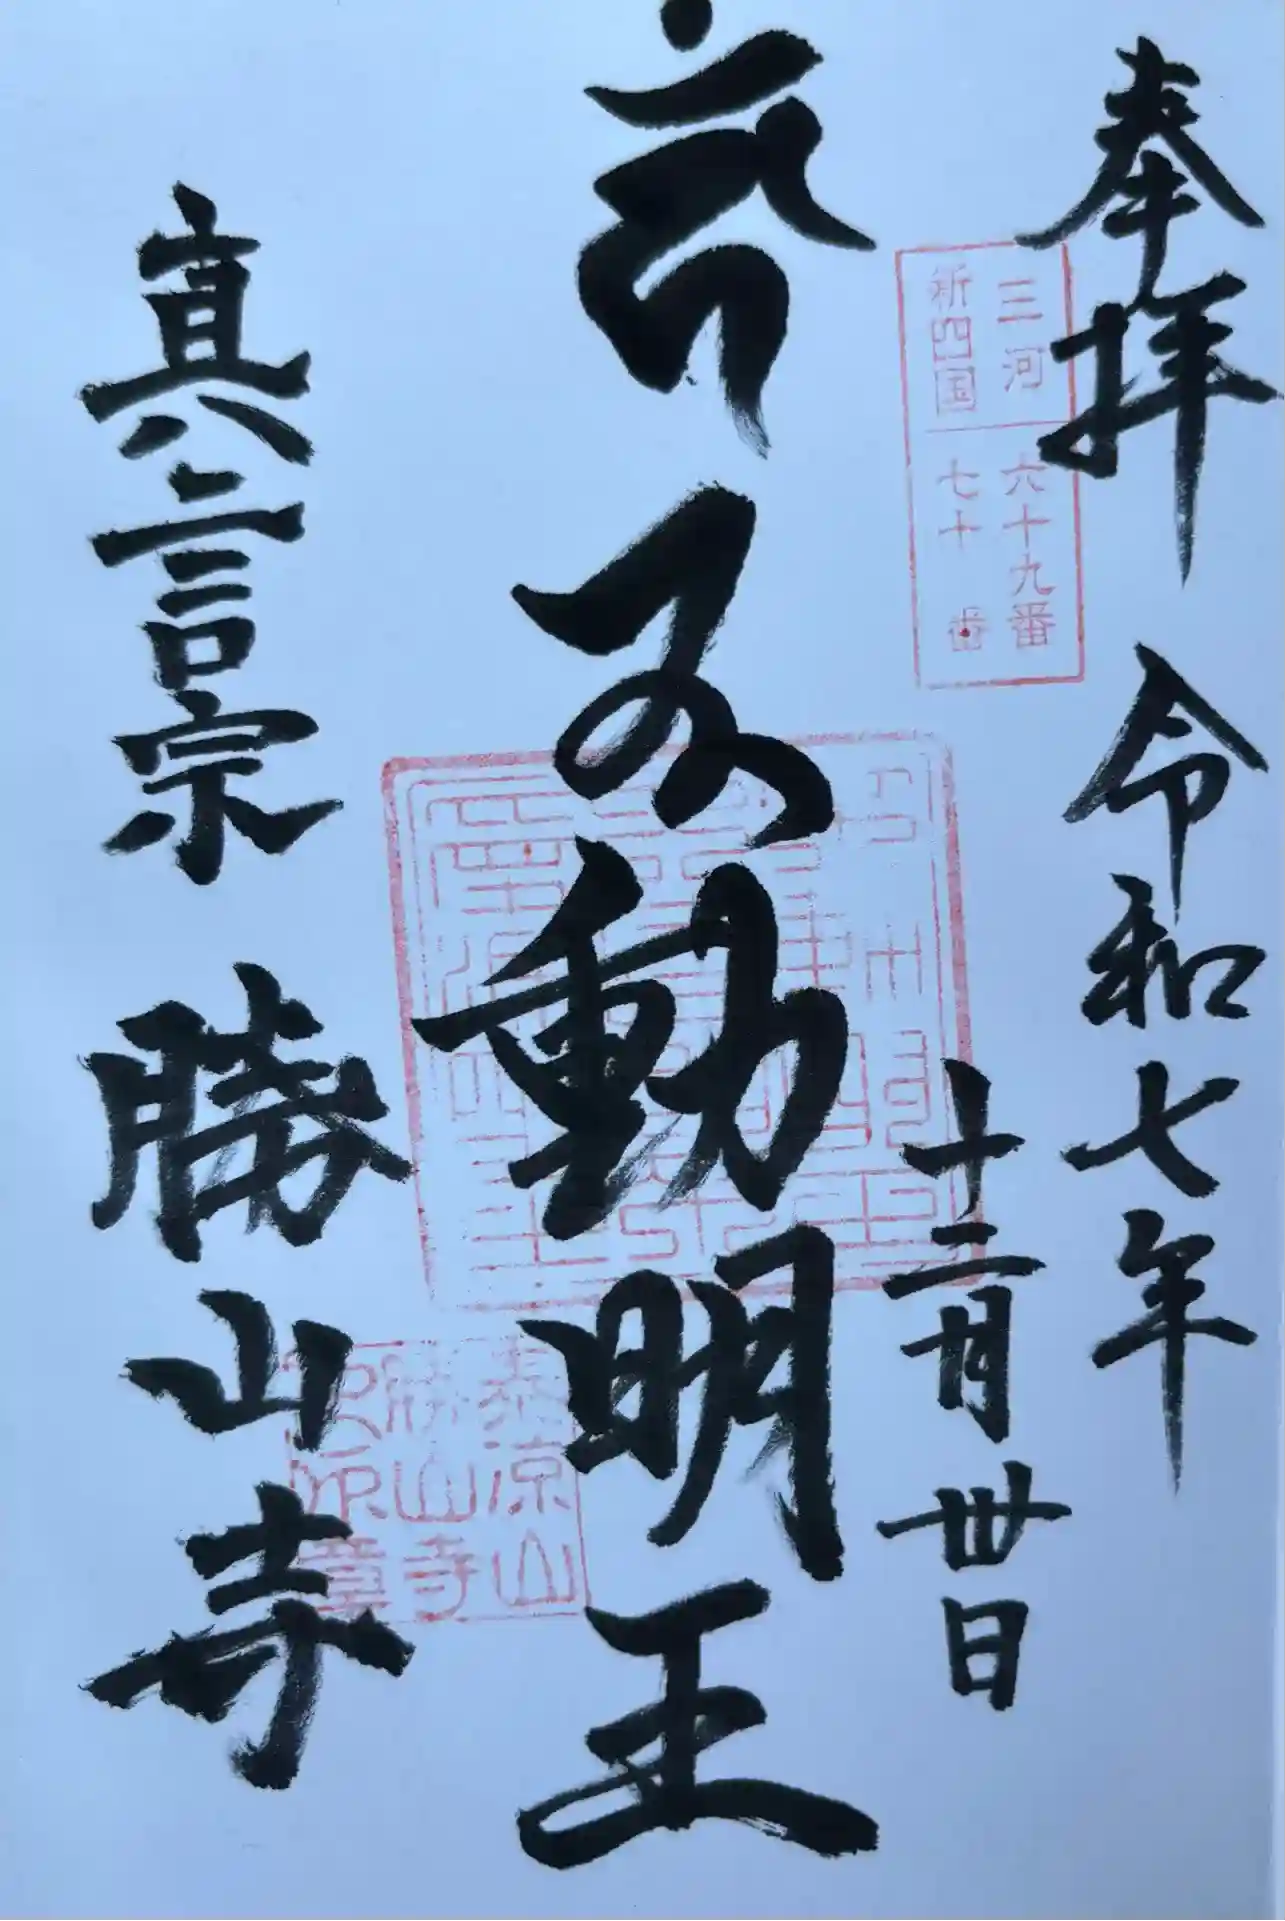 奉拝 令和七年
十二月 卅日
三河 六十九番
新四国 七十番
不動明王
泰凉山
勝山寺
真言宗 勝山寺